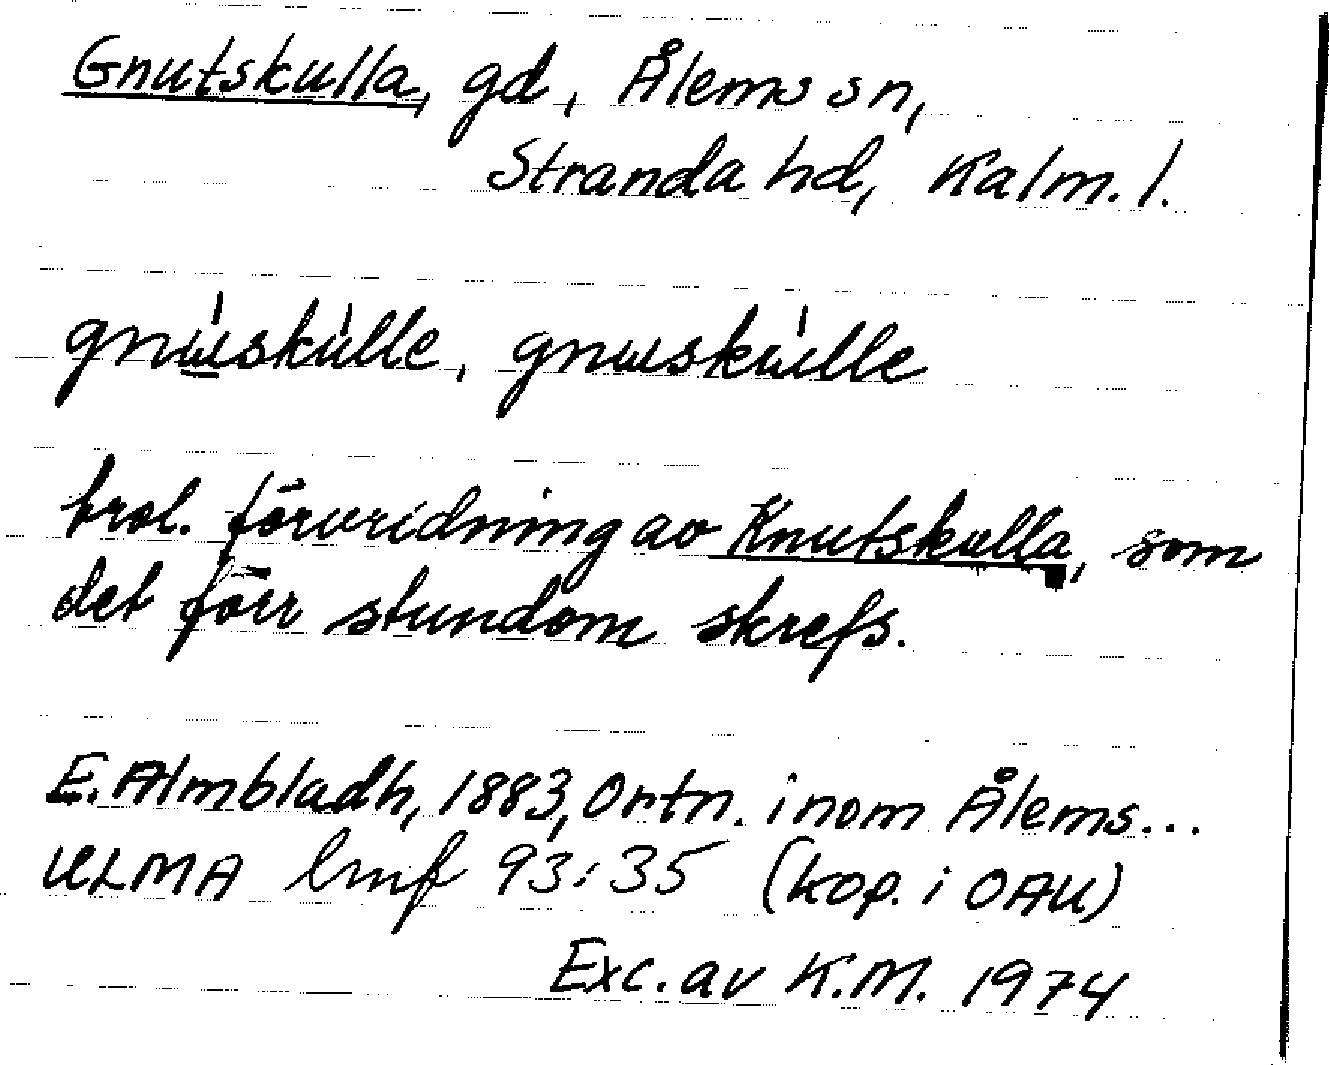 Gnutskulla, gd, Ålems sn,
Stranda hd, Kalm. l.
gnɯskulle, gnɯskulle
trol. förvridning av Knutskulla, som
det förr stundom skrefs.
E. Almbladh, 1883, Ortn. inom Ålems...
ULMA lmf 93:35 (kop. i OAU)
Exc. av K.M. 1974